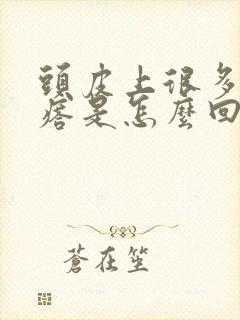 頭皮上很多
痞是怎麼回
蒼在笙